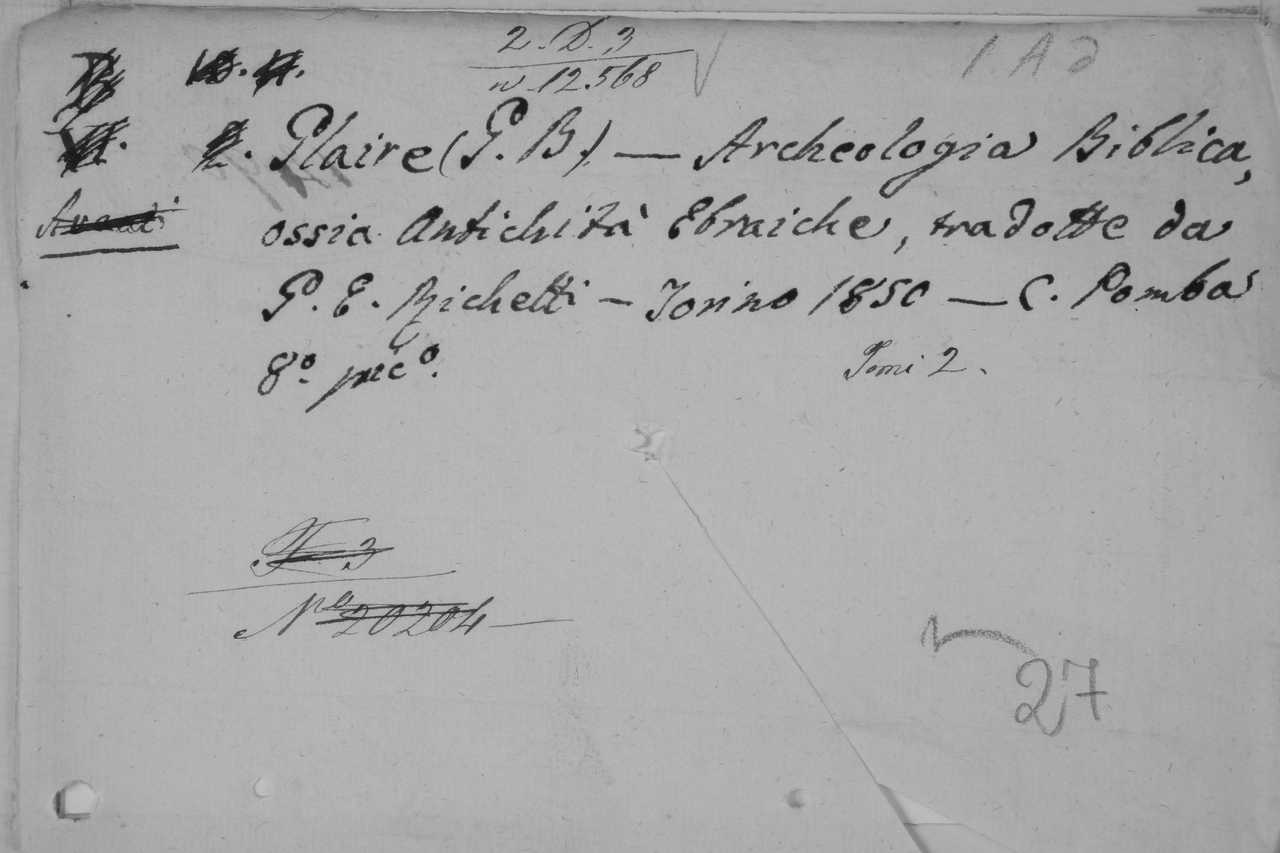 2. D. 3
n. 12.568
1. A d
Glaire (G. B) — Archeologia Biblica,
ossia Antichità Ebraiche, tradotte da
P. E. Richetti — Torino 1850 — C. Pomba
8º. picº.
Tomi 2.
F 3
Nº 20204 —
27